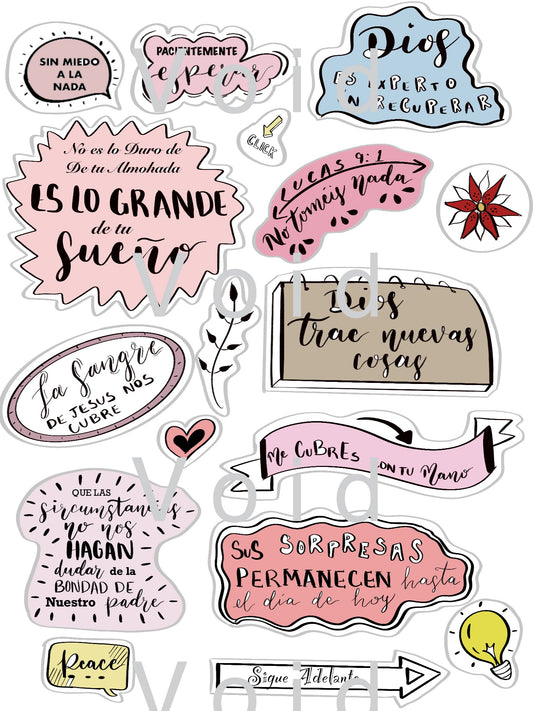 SIN MIEDO
A LA
NADA
PACIENTEMENTE
esperar
Dios
ES EXPERTO
EN RECUPERAR
CLICK
No es lo Duro de
De tu Almohada
ES LO GRANDE
de tu
Sueño
LUCAS 9:1
No toméis nada
Dios
trae nuevas
cosas
La Sangre
DE JESUS NOS
CUBRE
Me CuBREs CON TU Mano
QUE LAS
circumstancias
no nos
HAGAN
dudar de la
BONDAD DE
Nuestro padre
SUS SORPRESAS
PERMANECEN hasta
el día de hoy
Peace
Sigue Adelante
Void
Void
Void
Void